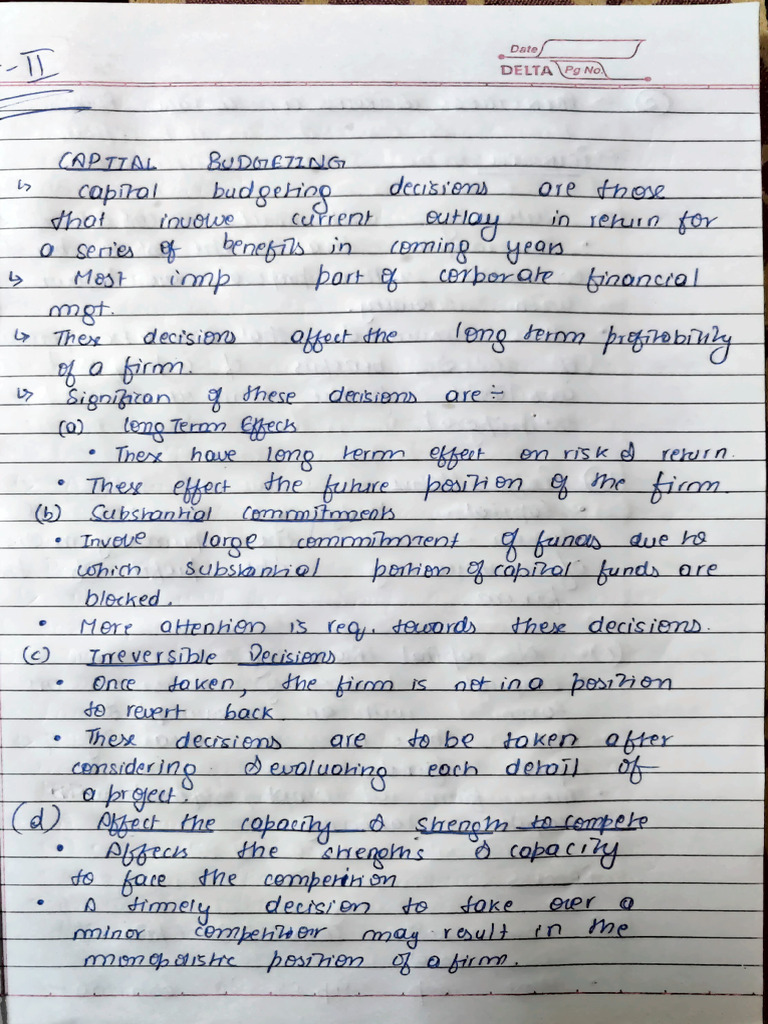 -II
Date
DELTA Pg No.
CAPITAL BUDGETING
↳ capital budgeting decisions are those
that involve current outlay in return for
a series of benefits in coming years
↳ Most imp part of corporate financial
mgt.
↳ These decisions affect the long term profitability
of a firm.
↳ Significan of these decisions are :-
(a) Long Term Effects
• These have long term effect on risk & return.
• These effect the future position of the firm.
(b) Substantial commitments
• Involve large commitment of funds due to
which substantial portion of capital funds are
blocked.
• More attention is req. towards these decisions.
(c) Irreversible Decisions
• Once taken, the firm is not in a position
to revert back.
• These decisions are to be taken after
considering & evaluating each detail of
a project.
(d) Affect the capacity & strength to compete
• Affects the strengths & capacity
to face the competition
• A timely decision to take over a
minor competitior may result in the
monopolistic position of a firm.